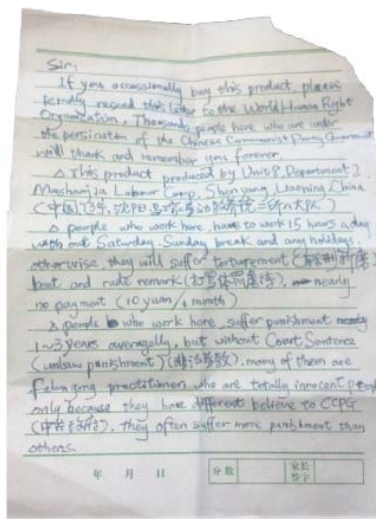 Sir:
If you occassionally buy this product, please
kindly resend this letter to the World Human Right
Organization. Thousands people here who are under
the persicution of the Chinese Communist Party Government
will thank and remember you forever.
△ This product produced by Unit 8, Department 2,
Mashanjia Labour Camp, Shenyang, Liaoning, China
(中国,辽宁,沈阳马三家劳动教养院二所八大队)
△ people who work here, have to work 15 hours a day
with out Saturday, Sunday break and any holidays,
otherwise, they will suffer torturement
beat and rude remark (打骂体罚虐待), nearly
no payment (10 yuan/1 month)
△ people who work here, suffer punishment
1~3 years averagelly, but without Court Sentence
(unlaw punishment) (非法劳教), many of them are
Falun gong practitioner, who are totally innocent people
only because they have different believe to CCPG
they often suffer more punishment than
others.
年 月 日 分数 家长签字